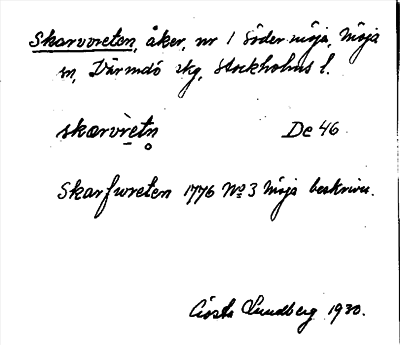 Skarvvreten, åker, nr 1 Södermöja, Möja
sn, Värmdö skg, Stockholms l.
skærvre̱tn̥ De 46
Skarfwreten 1776 No 3 Möja beskrivn.
Gösta Lundberg 1930.